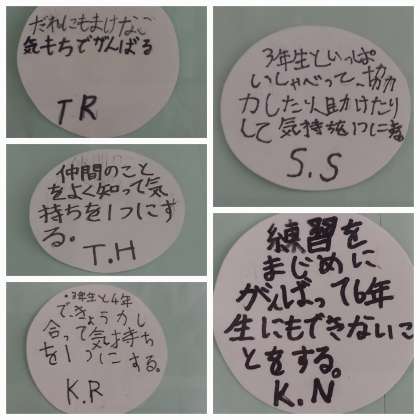 だれにもまけない
気もちでがんばる
T R
仲間のこと
をよく知って気
持ちを1つにす
る。
T.H
・3年生と4年
できょう力し
合って気持ち
を1つにする。
K.R
3年生といっぱ
いしゃべって、協
力したり助けたり
して気持を1つにする
S.S
練習を
まじめに
がんばって6年
生にもできないこ
とをする。
K.N